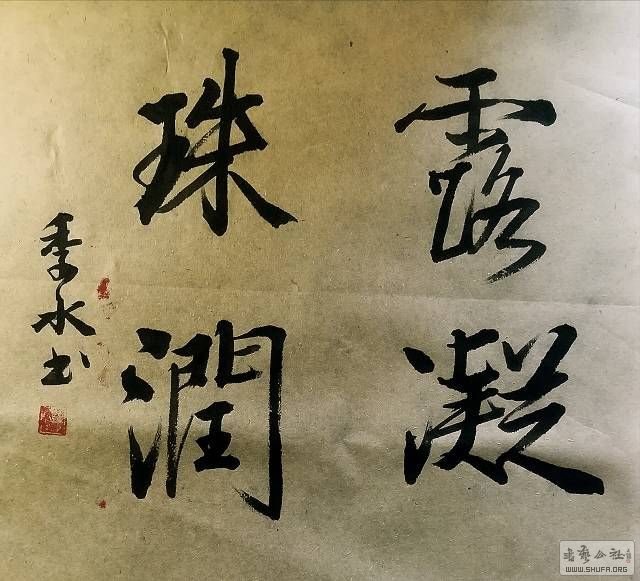 露凝
珠潤
季水书
书艺公社
WWW.SHUFA.ORG